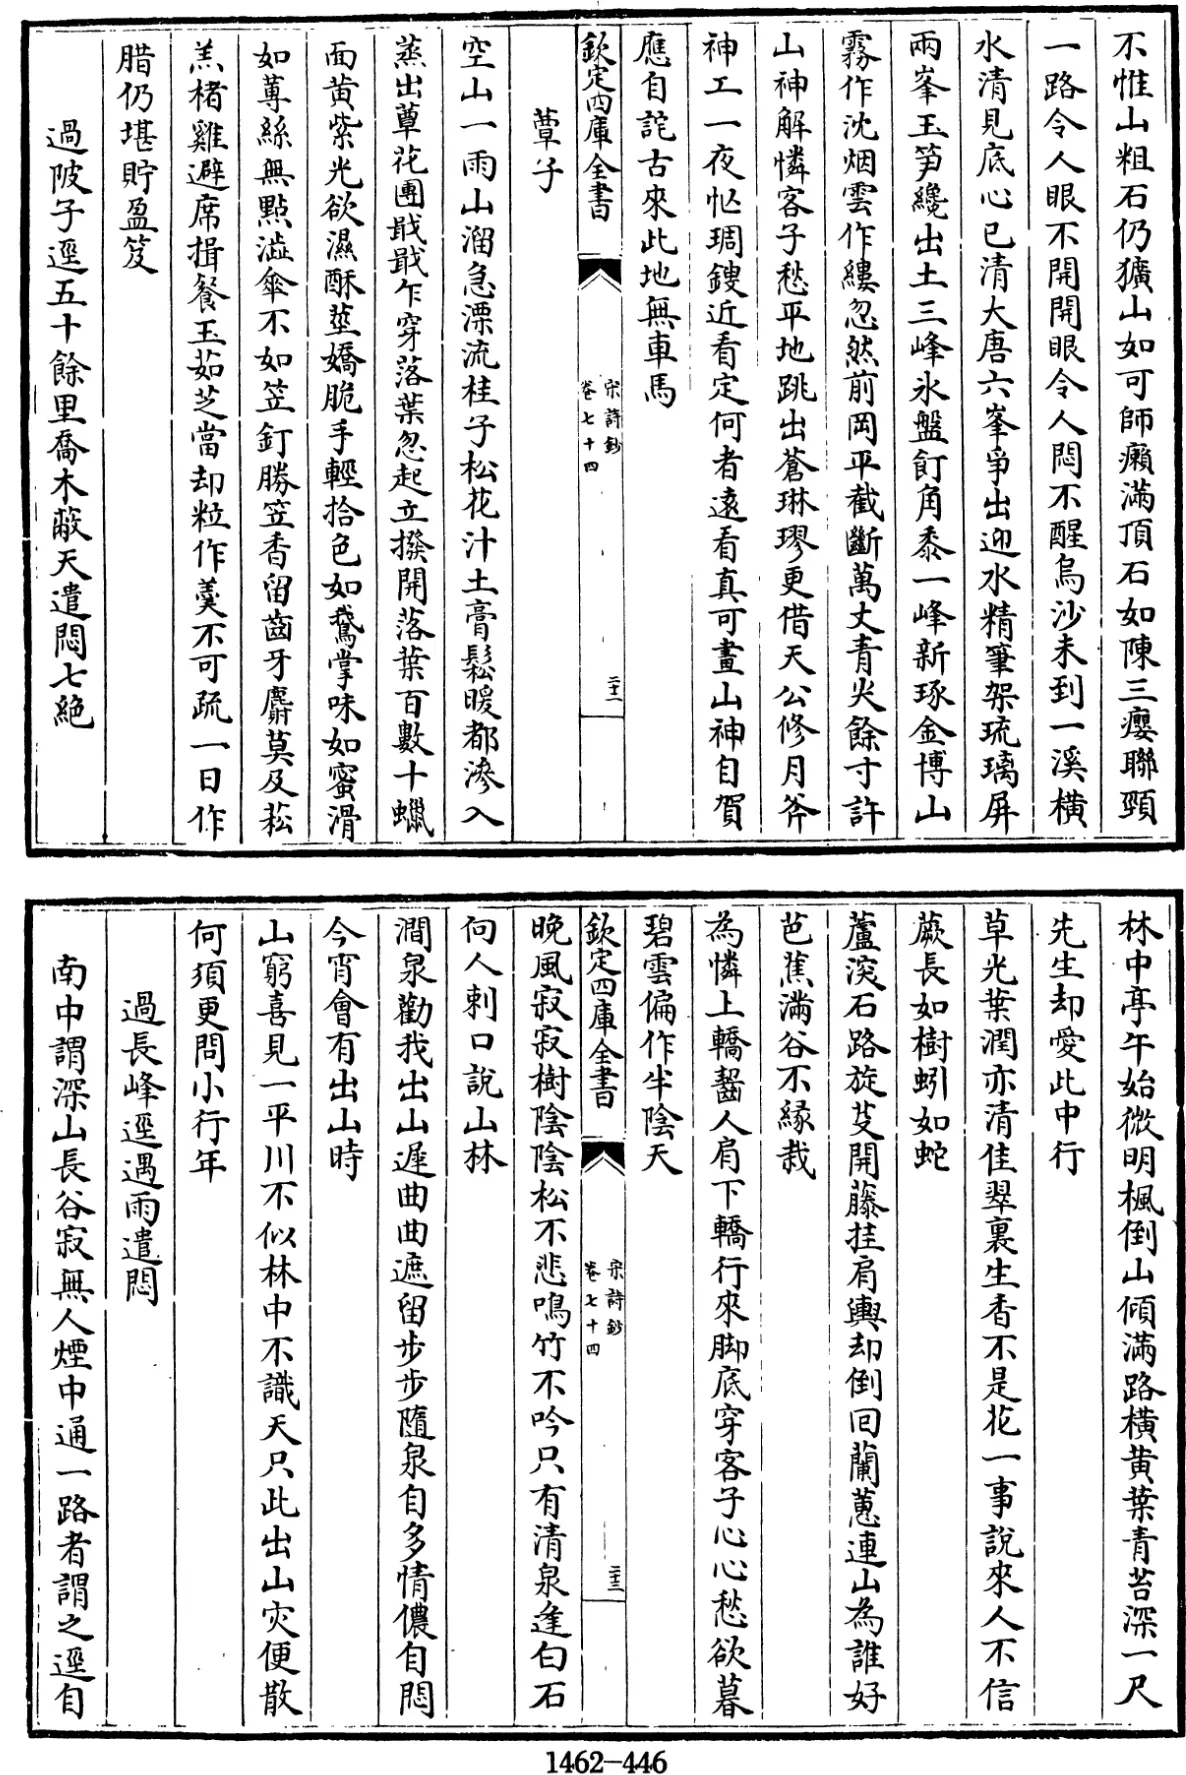 不惟山粗石仍獷山如可師癩滿頂石如陳三癭聯頸
一路令人眼不開開眼令人悶不醒烏沙未到一溪橫
水清見底心已清大唐六峯爭出迎水精筆架琉璃屏
兩峯玉笋纔出土三峰氷盤飣角黍一峰新琢金博山
霧作沈烟雲作縷忽然前岡平截斷萬丈青尖餘寸許
山神解憐客子愁平地跳出蒼琳璆更借天公修月斧
神工一夜忙琱鎪近看定何者遠看真可畫山神自賀
應自詫古來此地無車馬
欽定四庫全書
宋詩鈔
卷七十四
二十二
蕈子
空山一雨山溜急漂流桂子松花汁土膏鬆暖都滲入
蒸出蕈花團戢戢乍穿落葉忽起立撥開落葉百數十蠟
面黄紫光欲濕酥莖嬌脆手輕拾色如鵞掌味如蜜滑
如蓴絲無點澁傘不如笠釘勝笠香留齒牙麝莫及菘
羔楮雞避席揖餐玉茹芝當却粒作羮不可疏一日作
腊仍堪貯盈笈
過陂子逕五十餘里喬木蔽天遣悶七絶
林中亭午始微明楓倒山傾滿路橫黄葉青苔深一尺
先生却愛此中行
草光葉潤亦清佳翠裏生香不是花一事說來人不信
蕨長如樹蚓如蛇
蘆深石路旋芟開藤挂肩輿却倒回蘭蕙連山為誰好
芭蕉滿谷不緣栽
為憐上轎齧人肩下轎行來脚底穿客子心心愁欲暮
碧雲偏作半陰天
欽定四庫全書
宋詩鈔
卷七十四
二十三
晚風寂寂樹陰陰松不悲鳴竹不吟只有清泉逢白石
向人刺口說山林
澗泉勸我出山遲曲曲遮留步步隨泉自多情儂自悶
今宵會有出山時
山窮喜見一平川不似林中不識天只此出山灾便散
何須更問小行年
過長峰逕遇雨遣悶
南中謂深山長谷寂無人煙中通一路者謂之逕自
1462-446